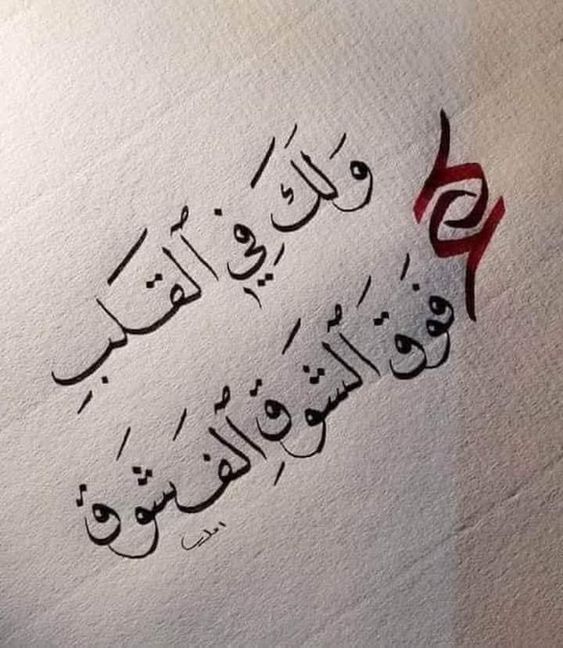 وَلَكَ فِي ٱلقَلبِ
فَوَقَ ٱلشَوقِ ٱلف شَوَق